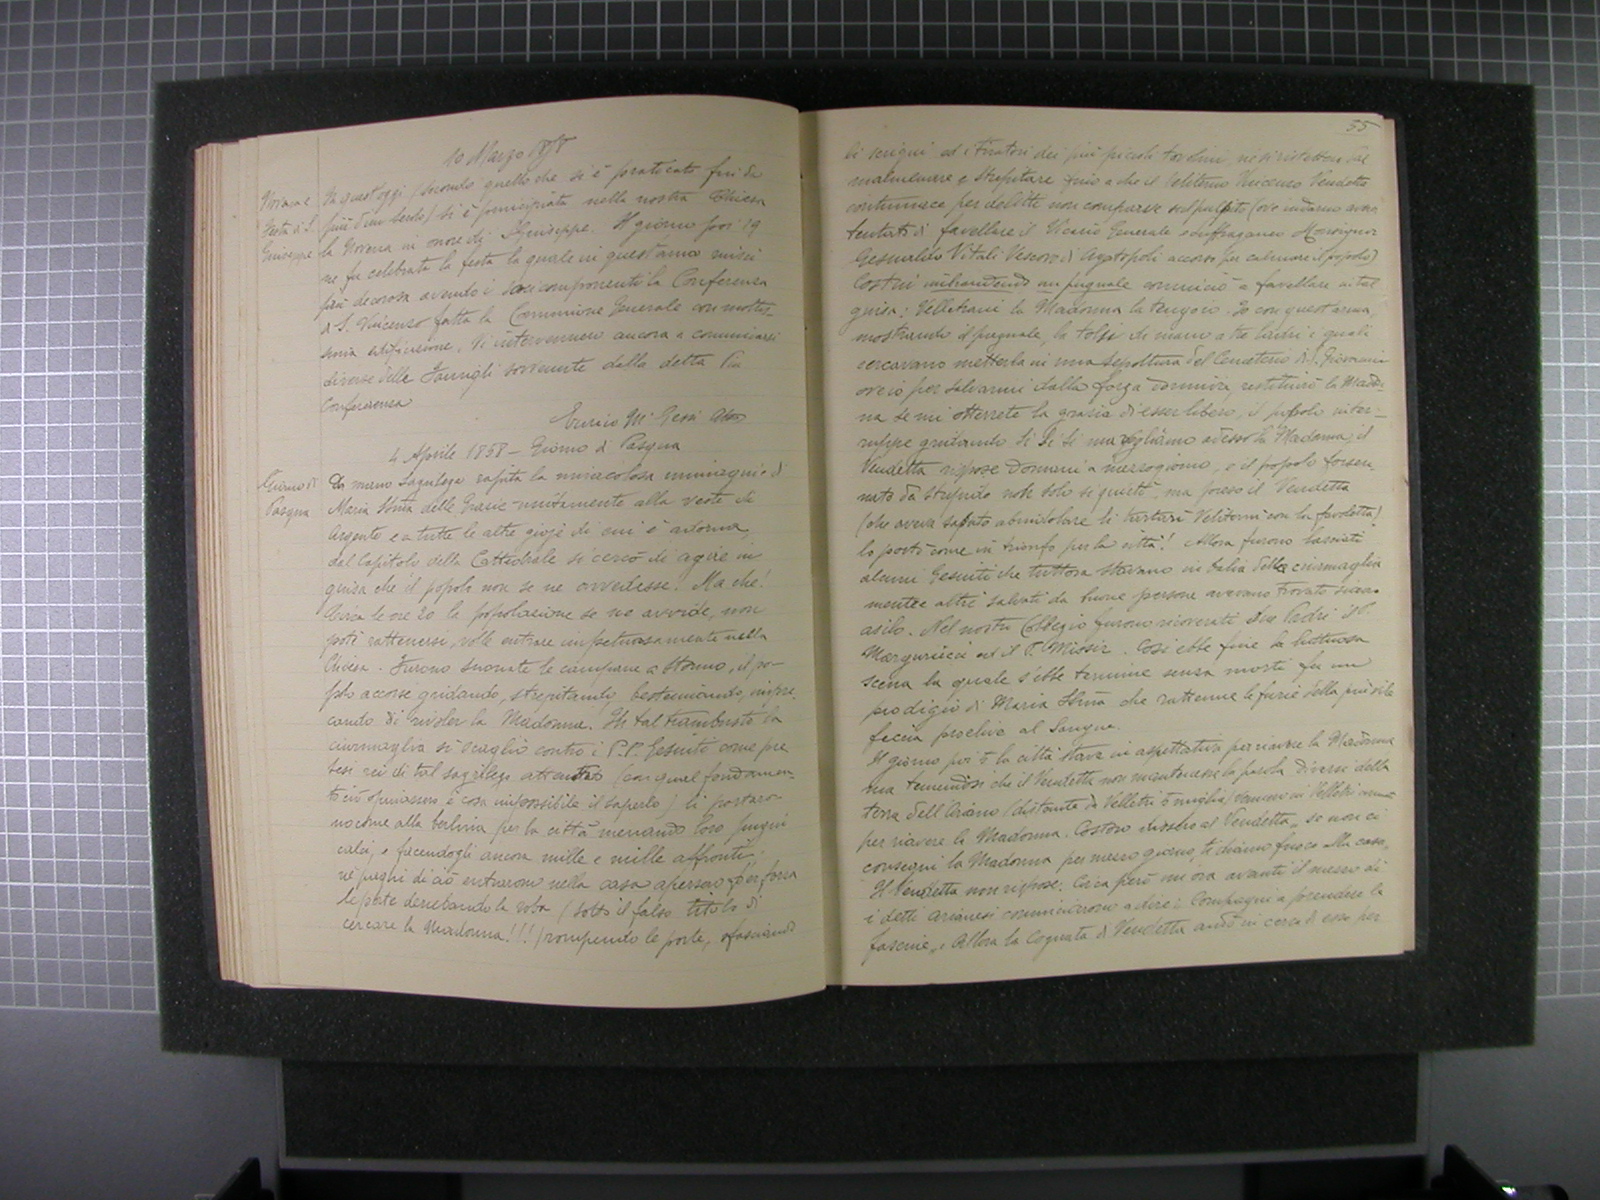 10 Marzo 1858
Novena e
Festa di S.
Giuseppe
In quest'oggi (secondo quello che si è praticato fin da
più d'un secolo) si è principiata nella nostra Chiesa
la Novena in onore di S. Giuseppe. Il giorno poi 19
ne fu celebrata la festa la quale in quest'anno riuscì
più decorosa avendo i soci componenti la Conferenza
di S. Vincenzo fatta la Comunione Generale con moltis-
sima edificazione. Vi intervennero ancora a comunicarsi
diverse delle Famigli sovvenute dalla detta Pia
Conferenza
Enrico Mª
4 Aprile 1858 – Giorno di Pasqua
Giorno di
Pasqua
Da mano sagrilega rapita la miracolosa immagine di
Maria Ssma delle Grazie unitamente alla veste di
Argento e a tutte le altre gioje di cui è adorna,
dal Capitolo della Cattedrale si cercò di agire in
guisa che il popolo non se ne avvedesse. Ma che!
Circa le ore 20 la popolazione se ne avvide, non
potè rattenersi, volle entrare impetuosamente nella
Chiesa. Furono suonate le campane a stormo, il po-
polo accorse gridando, strepitando, bestemiando, impre-
cando di rivoler la Madonna. In tal trambusto la
ciurmaglia si scagliò contro i P.P. Gesuiti come pre
tesi rei di tal sagrilego attentato (con qual fondamen-
to ciò opinassero è cosa impossibile il saperlo) li portaro-
no come alla berlina per la città menando loro pugni
calci, e facendogli ancora mille e mille affronti,
nè paghi di ciò entrarono nella casa apersero per forza
le porte derubando la roba (sotto il falso titolo di
cercare la Madonna!!!) rompendo le porte, sfasciando
55
li scrigni ed i tiratori dei più piccoli tavolini, nè si ristettero dal
malmenare e strepitare fino a che il Veliterno Vincenzo Vendetta
contumace per delitti non comparve sul pulpito (ove indarno avea
tentato di favellare il Vicario Generale e Suffraganeo Monsignor
Gesualdo Vitali Vescovo di Agatopoli accorso per calmare il popolo)
Costui imbrandendo un pugnale cominciò a favellare in tal
guisa: Velletrani la Madonna la tengo io. Io con quest'arma,
mostrando il pugnale, la tolsi di mano a tre ladri i quali
cercavano metterla in una sepoltura del Cemeterio di S. Giovanni
ov'io per salvarmi dalla forza dormiva, restituirò la Madon-
na se mi otterrete la grazia di esser libero, il popolo inter-
ruppe gridando Si Si Si ma vogliamo adesso la Madonna, il
Vendetta rispose Domani a mezzogiorno, e il popolo forsen-
nato da stupido non solo si quietò, ma preso il Vendetta
(che aveva saputo abbindolare li turturi Veliterni con la favoletta)
lo portò come in trionfo per la città! Allora furono lasciati
alcuni Gesuiti che tuttora stavano in balia della ciurmaglia
mentre altri salvati da buone persone avevano trovato sicuro
asilo. Nel nostro Collegio furono ricoverati due Padri il P.
ed il P. Così ebbe fine la luttuosa
scena la quale s'ebbe termine senza morti fu un
prodigio di Maria Ssma che rattenne le furie della più vile
feccia proclive al sangue.
Il giorno poi 5 la città stava in aspettativa per riavere la Madonna
ma temendosi che il Vendetta non mantenesse la parola diversi della
terra dell'Ariano (distante da Velletri 5 miglia) vennero in Velletri
per riavere la Madonna. Costoro dissero al Vendetta „ se non ci
consegni la Madonna per mezzo giorno, ti diamo fuoco alla casa„
Il Vendetta non rispose. Circa però un'ora avanti il mezzo dì
i detti Arianesi cominciarono a dire: Compagni a prendere le
fascine„ Allora la Cognata di Vendetta andò in cerca di esso per